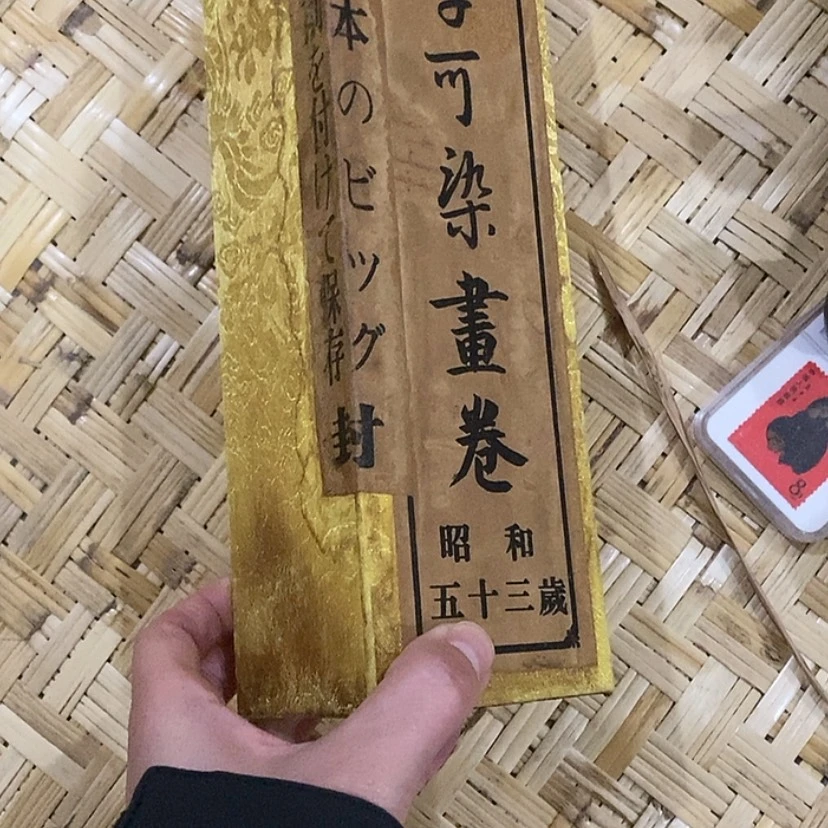 可染畫卷
昭和
五十三歲
本のビツグ封
を付けて保存
8